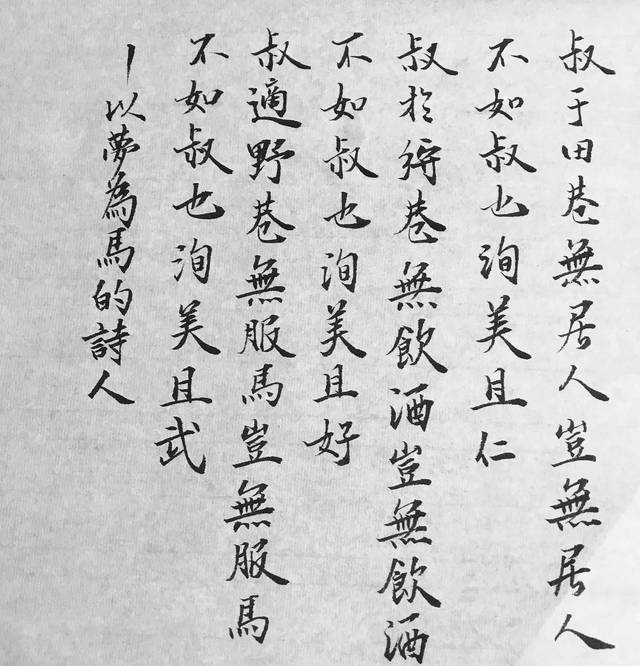 叔于田巷無居人豈無居人
不如叔也洵美且仁
叔於狩巷無飲酒豈無飲酒
不如叔也洵美且好
叔適野巷無服馬豈無服馬
不如叔也洵美且武
—以夢為馬的詩人